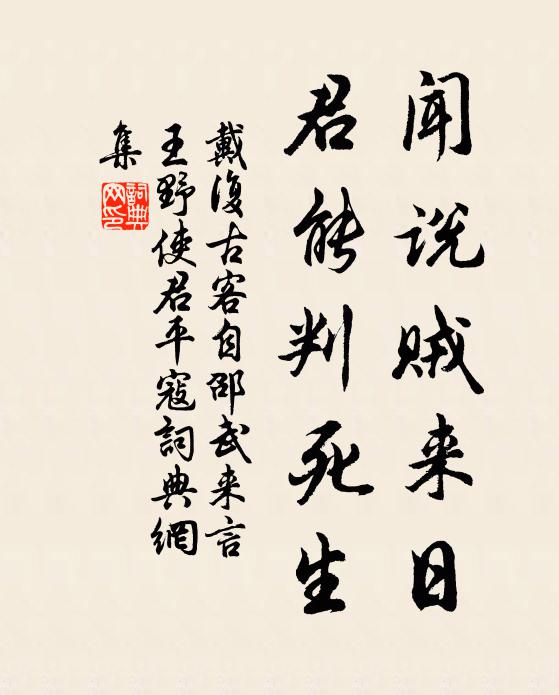 聞说贼来日
君能判死生
戴復古客自邵武来言
王野使君平寇詞典網
集
詞典
网印